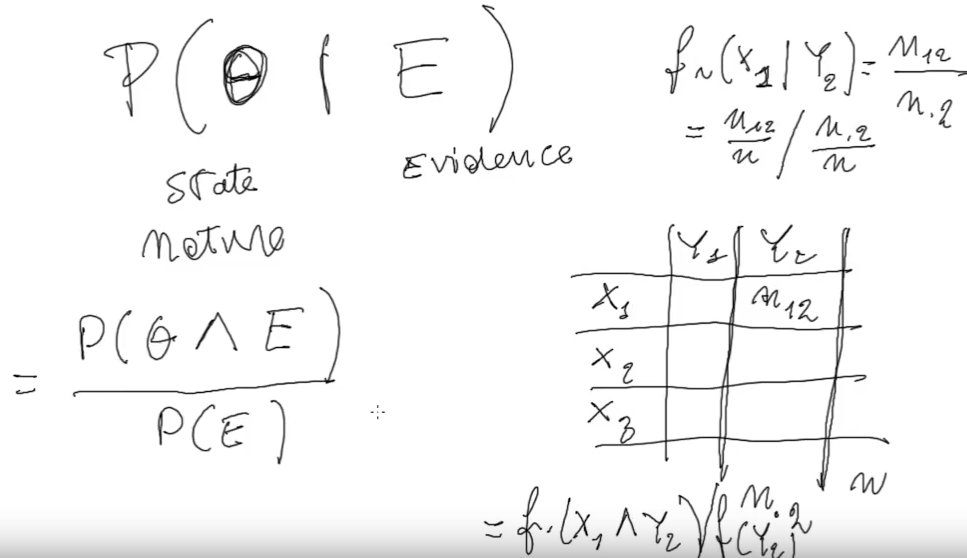 P(θ | E)
state
nature
Evidence
= P(θ ∧ E) / P(E)
fr(X1 | Y2) = n12 / n.2
= n12/n / n.2/n
Y1 Y2
X1 n12
X2
X3
n.2 n
= fr(X1 ∧ Y2) / f(Y2)